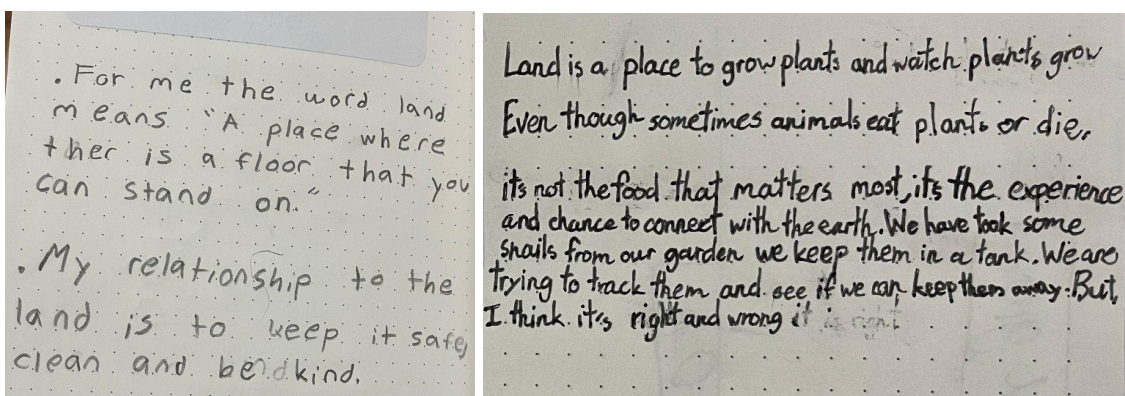 . For me the word land
means "A place where
ther is a floor that you
can stand on."
. My relationship to the
land is to keep it safe,
clean and be kind.
Land is a place to grow plants and watch plants grow
Even though sometimes animals eat plants or die,
it's not the food that matters most, it's the experience
and chance to connect with the earth. We have took some
snails from our garden we keep them in a tank. We are
trying to track them and see if we can keep them away. But,
I think it's right and wrong it is right